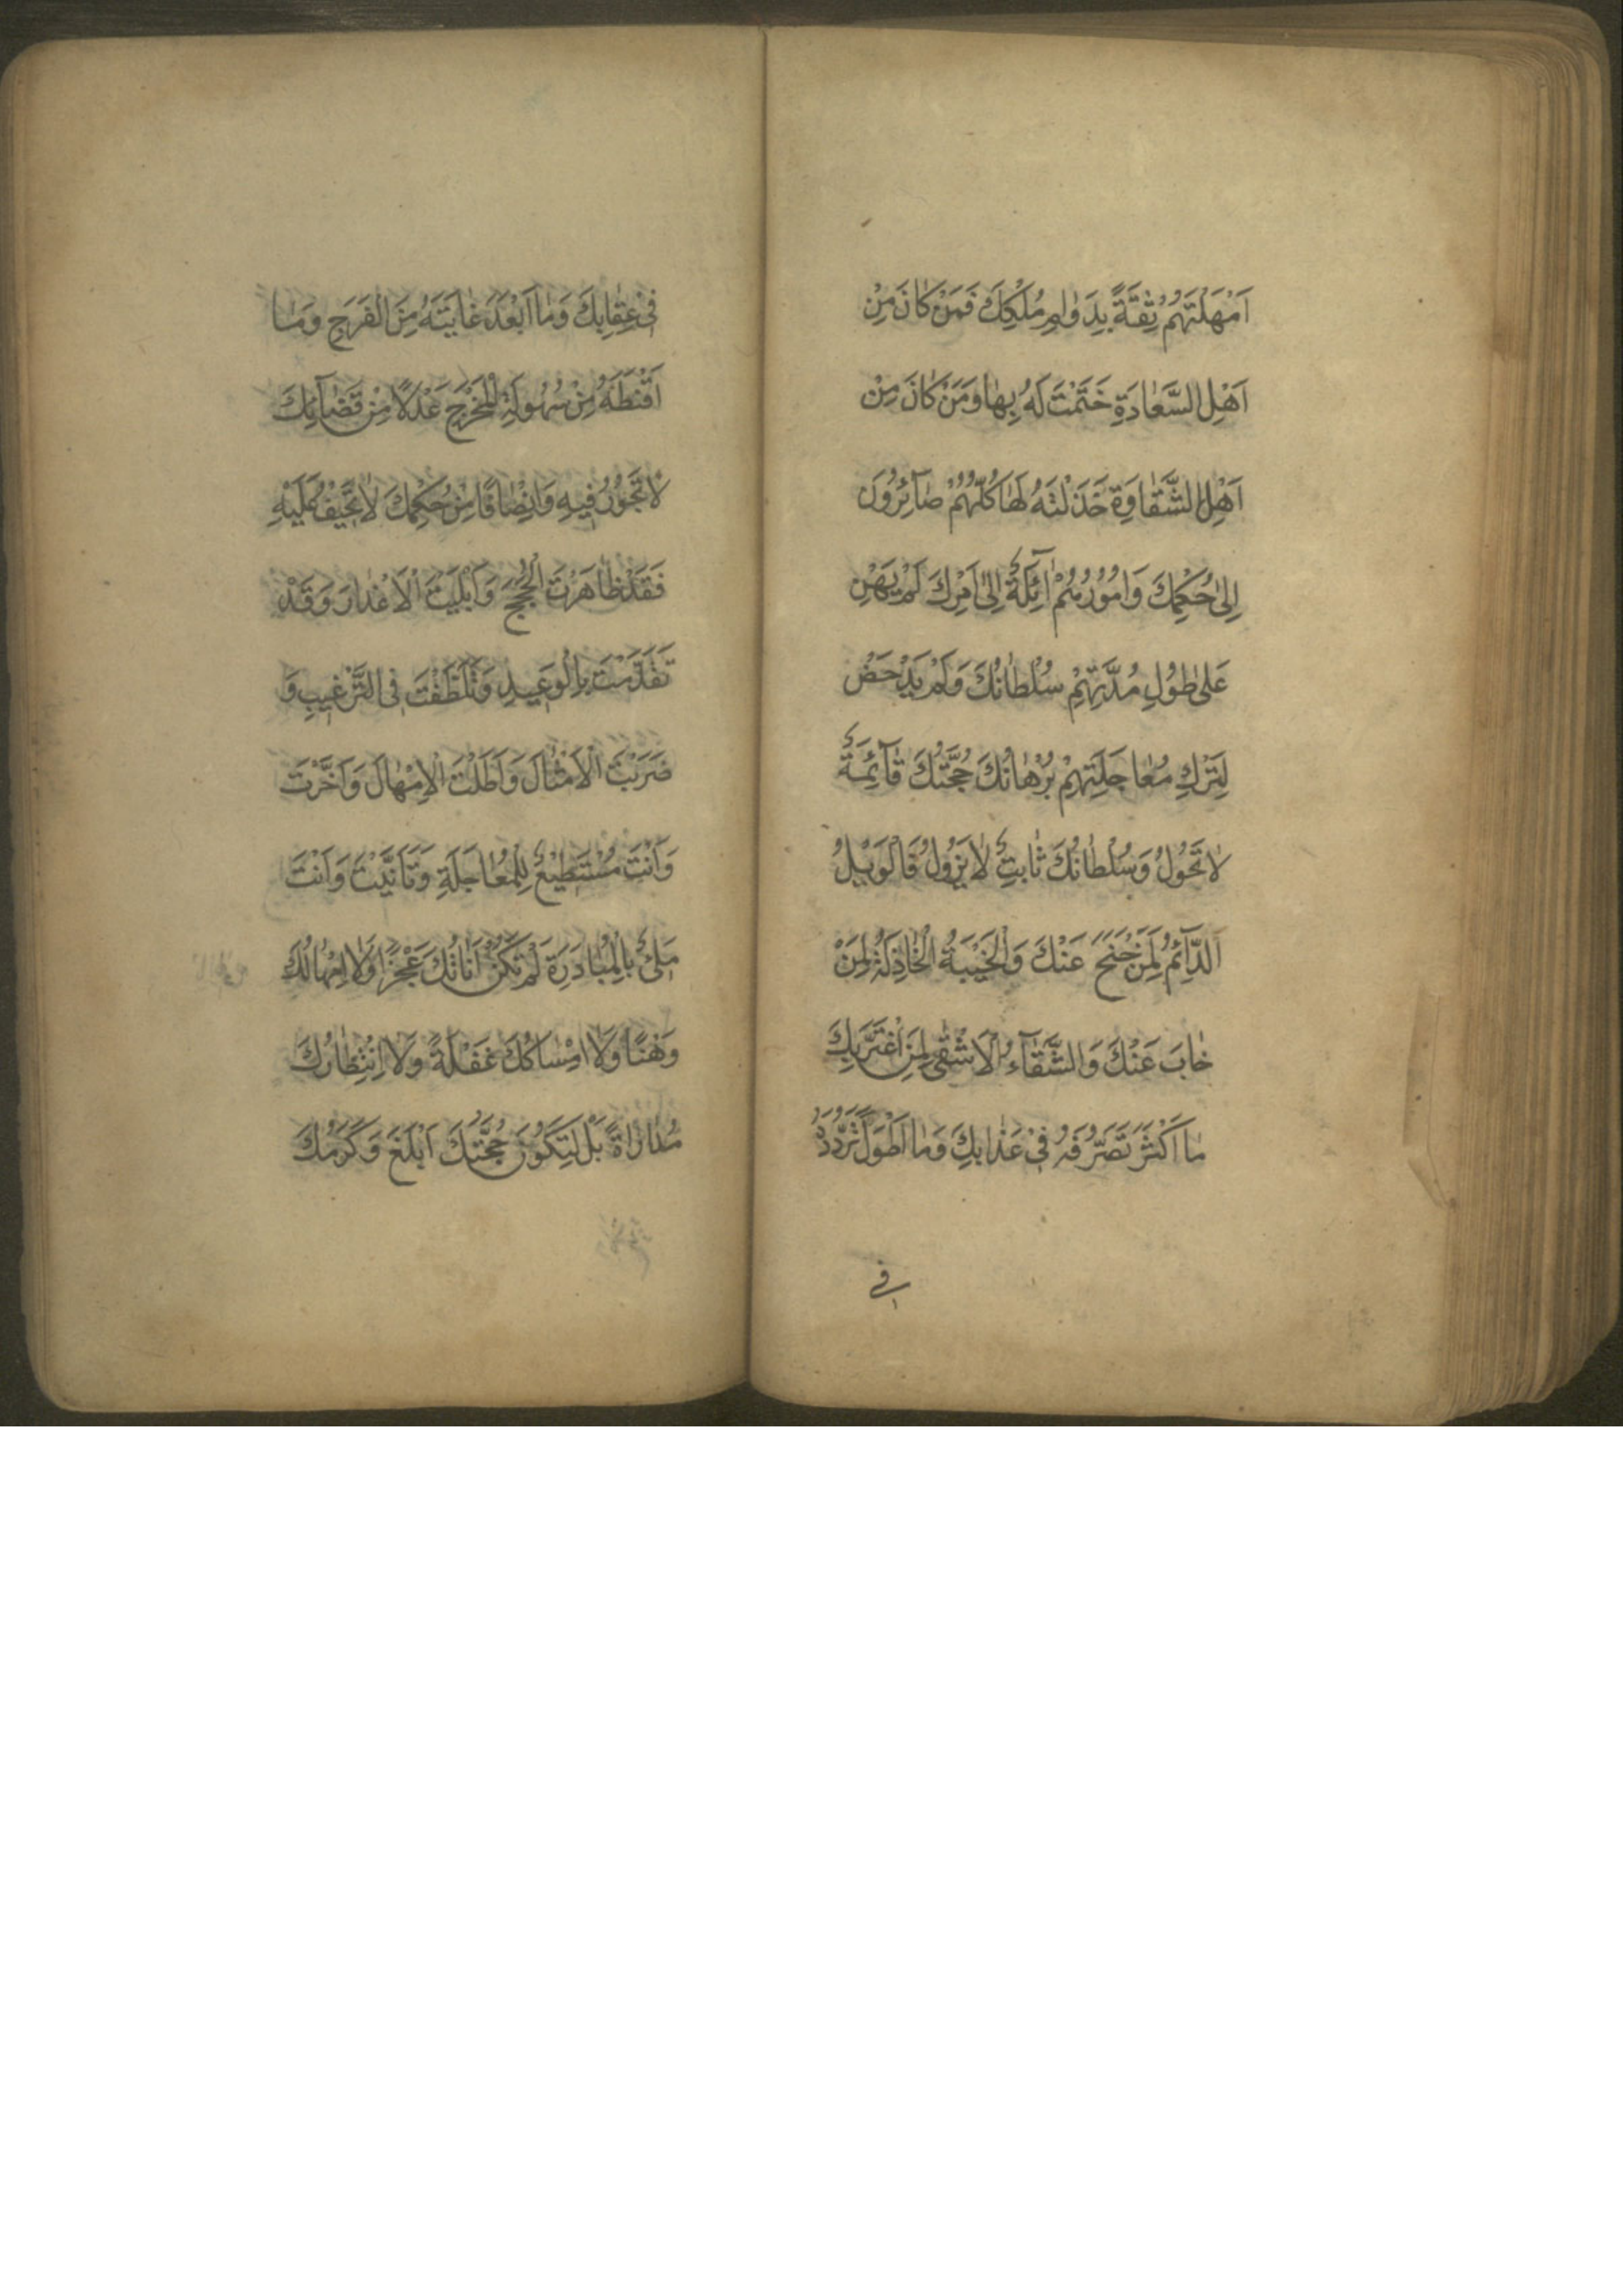 اَمْهَلْتَهُمْ ثِقَةً بِدَوٰامِ مُلْكِكَ فَمَنْ كٰانَ مِنْ
اَهْلِ السَّعٰادَةِ خَتَمْتَ لَهُ بِهٰا وَمَنْ كٰانَ مِنْ
اَهْلِ الشَّقٰاوَةِ خَذَلْتَهُ لَهٰا كُلُّهُمْ صٰآئِرُونَ
اِلىٰ حُكْمِكَ وَاُمُوْرُهُمْ اٰئِلَةٌ اِلىٰ اَمْرِكَ لَمْ يَهِنْ
عَلىٰ طُوْلِ مُدَّتِهِمْ سُلْطٰانُكَ وَلَمْ يَدْحَضْ
لِتَرْكِ مُعٰاجَلَتِهِمْ بُرْهٰانُكَ حُجَّتُكَ قٰآئِمَةٌ
لاٰ تَحُوْلُ وَسُلْطٰانُكَ ثٰابِتٌ لاٰ يَزُوْلُ فَالْوَيْلُ
الدّٰآئِمُ لِمَنْ جَنَحَ عَنْكَ وَالْخَيْبَةُ الْخٰاذِلَةُ لِمَنْ
خٰابَ عَنْكَ وَالشَّقٰآءُ الْاَشْقىٰ لِمَنِ اغْتَرَّ بِكَ
مٰا اَكْثَرَ تَصَرُّفَهُ فِيْ عَذٰابِكَ وَمٰا اَطْوَلَ تَرَدُّدَهُ
فى
فِى عِقٰابِكَ وَمٰا اَبْعَدَ غٰايَتَهُ مِنَ الْفَرَجِ وَمٰا
اَقْنَطَهُ مِنْ سُهُولَةِ الْمَخْرَجِ عَدْلًا مِنْ قَضٰآئِكَ
لاٰ تَجُوْرُ فِيهِ وَاِنْصٰافًا مِنْ حُكْمِكَ لاٰ تَحِيْفُ عَلَيْهِ
فَقَدْ ظٰاهَرْتَ الْحُجَجَ وَاَبْلَيْتَ الْاَعْذٰارَ وَقَدْ
تَقَدَّمْتَ بِالْوَعِيدِ وَتَلَطَّفْتَ فِى التَّرْغِيبِ وَ
ضَرَبْتَ الْاَمْثٰالَ وَاَطَلْتَ الْاِمْهٰالَ وَاَخَّرْتَ
وَاَنْتَ مُسْتَطِيْعٌ لِلْمُعٰاجَلَةِ وَتَاَنَّيْتَ وَاَنْتَ
مَلِىْءٌ بِالْمُبٰادَرَةِ لَمْ تَكُنْ اَنٰاتُكَ عَجْزًا وَلاٰ اِمْهٰالُكَ
وَهْنًا وَلاٰ اِمْسٰاكُكَ غَفْلَةً وَلاٰ اِنْتِظٰارُكَ
مُدٰارٰاةً بَلْ لِتَكُوْنَ حُجَّتُكَ اَبْلَغَ وَكَرَمُكَ